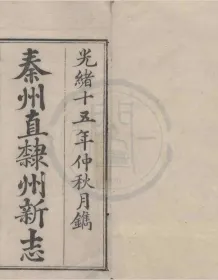 光緒十五年仲秋月鐫
秦州直隸州新志